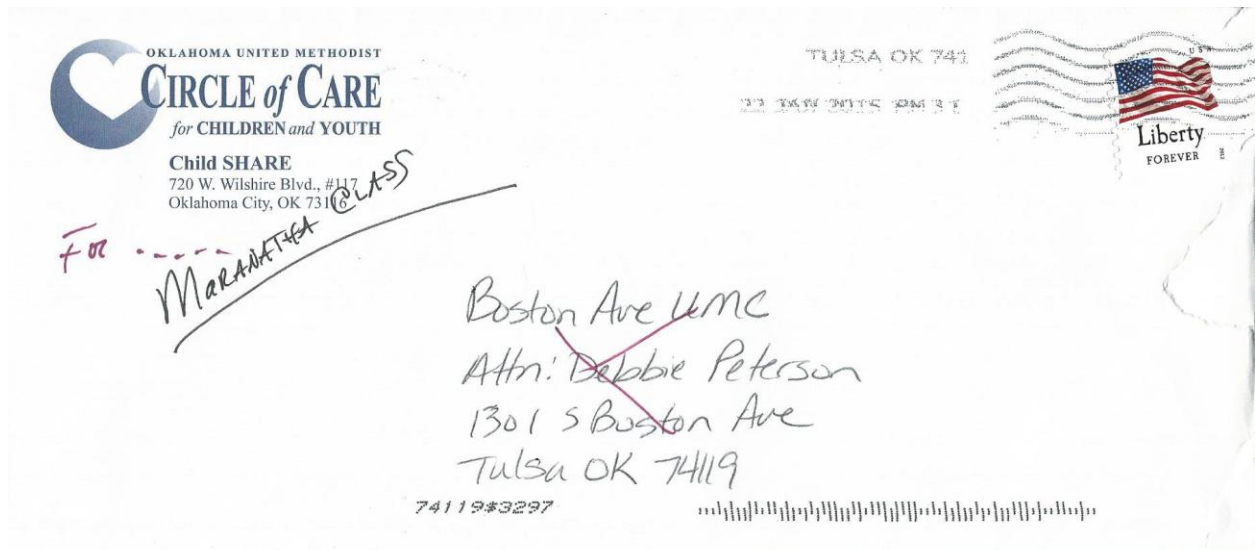 OKLAHOMA UNITED METHODIST
CIRCLE of CARE
for CHILDREN and YOUTH
Child SHARE
720 W. Wilshire Blvd., #117
Oklahoma City, OK 73116
TULSA OK 741
22 JAN 2015 PM 3 L
USA
Liberty
FOREVER
For -----
MARANATHA CLASS
Boston Ave UMC
Attn: Debbie Peterson
1301 S Boston Ave
Tulsa OK 74119
74119$3297